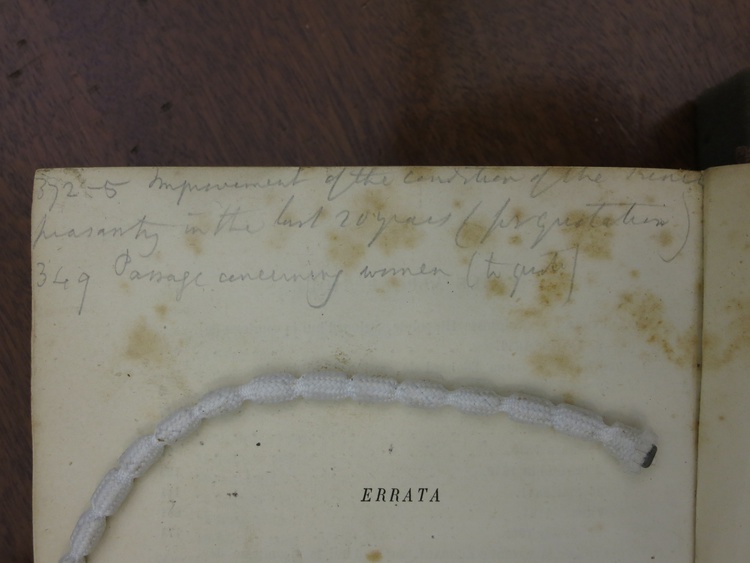 372-5 Improvement of the condition of the French
peasantry in the last 20 years (for quotation)
349 Passage concerning women (to quote)
ERRATA